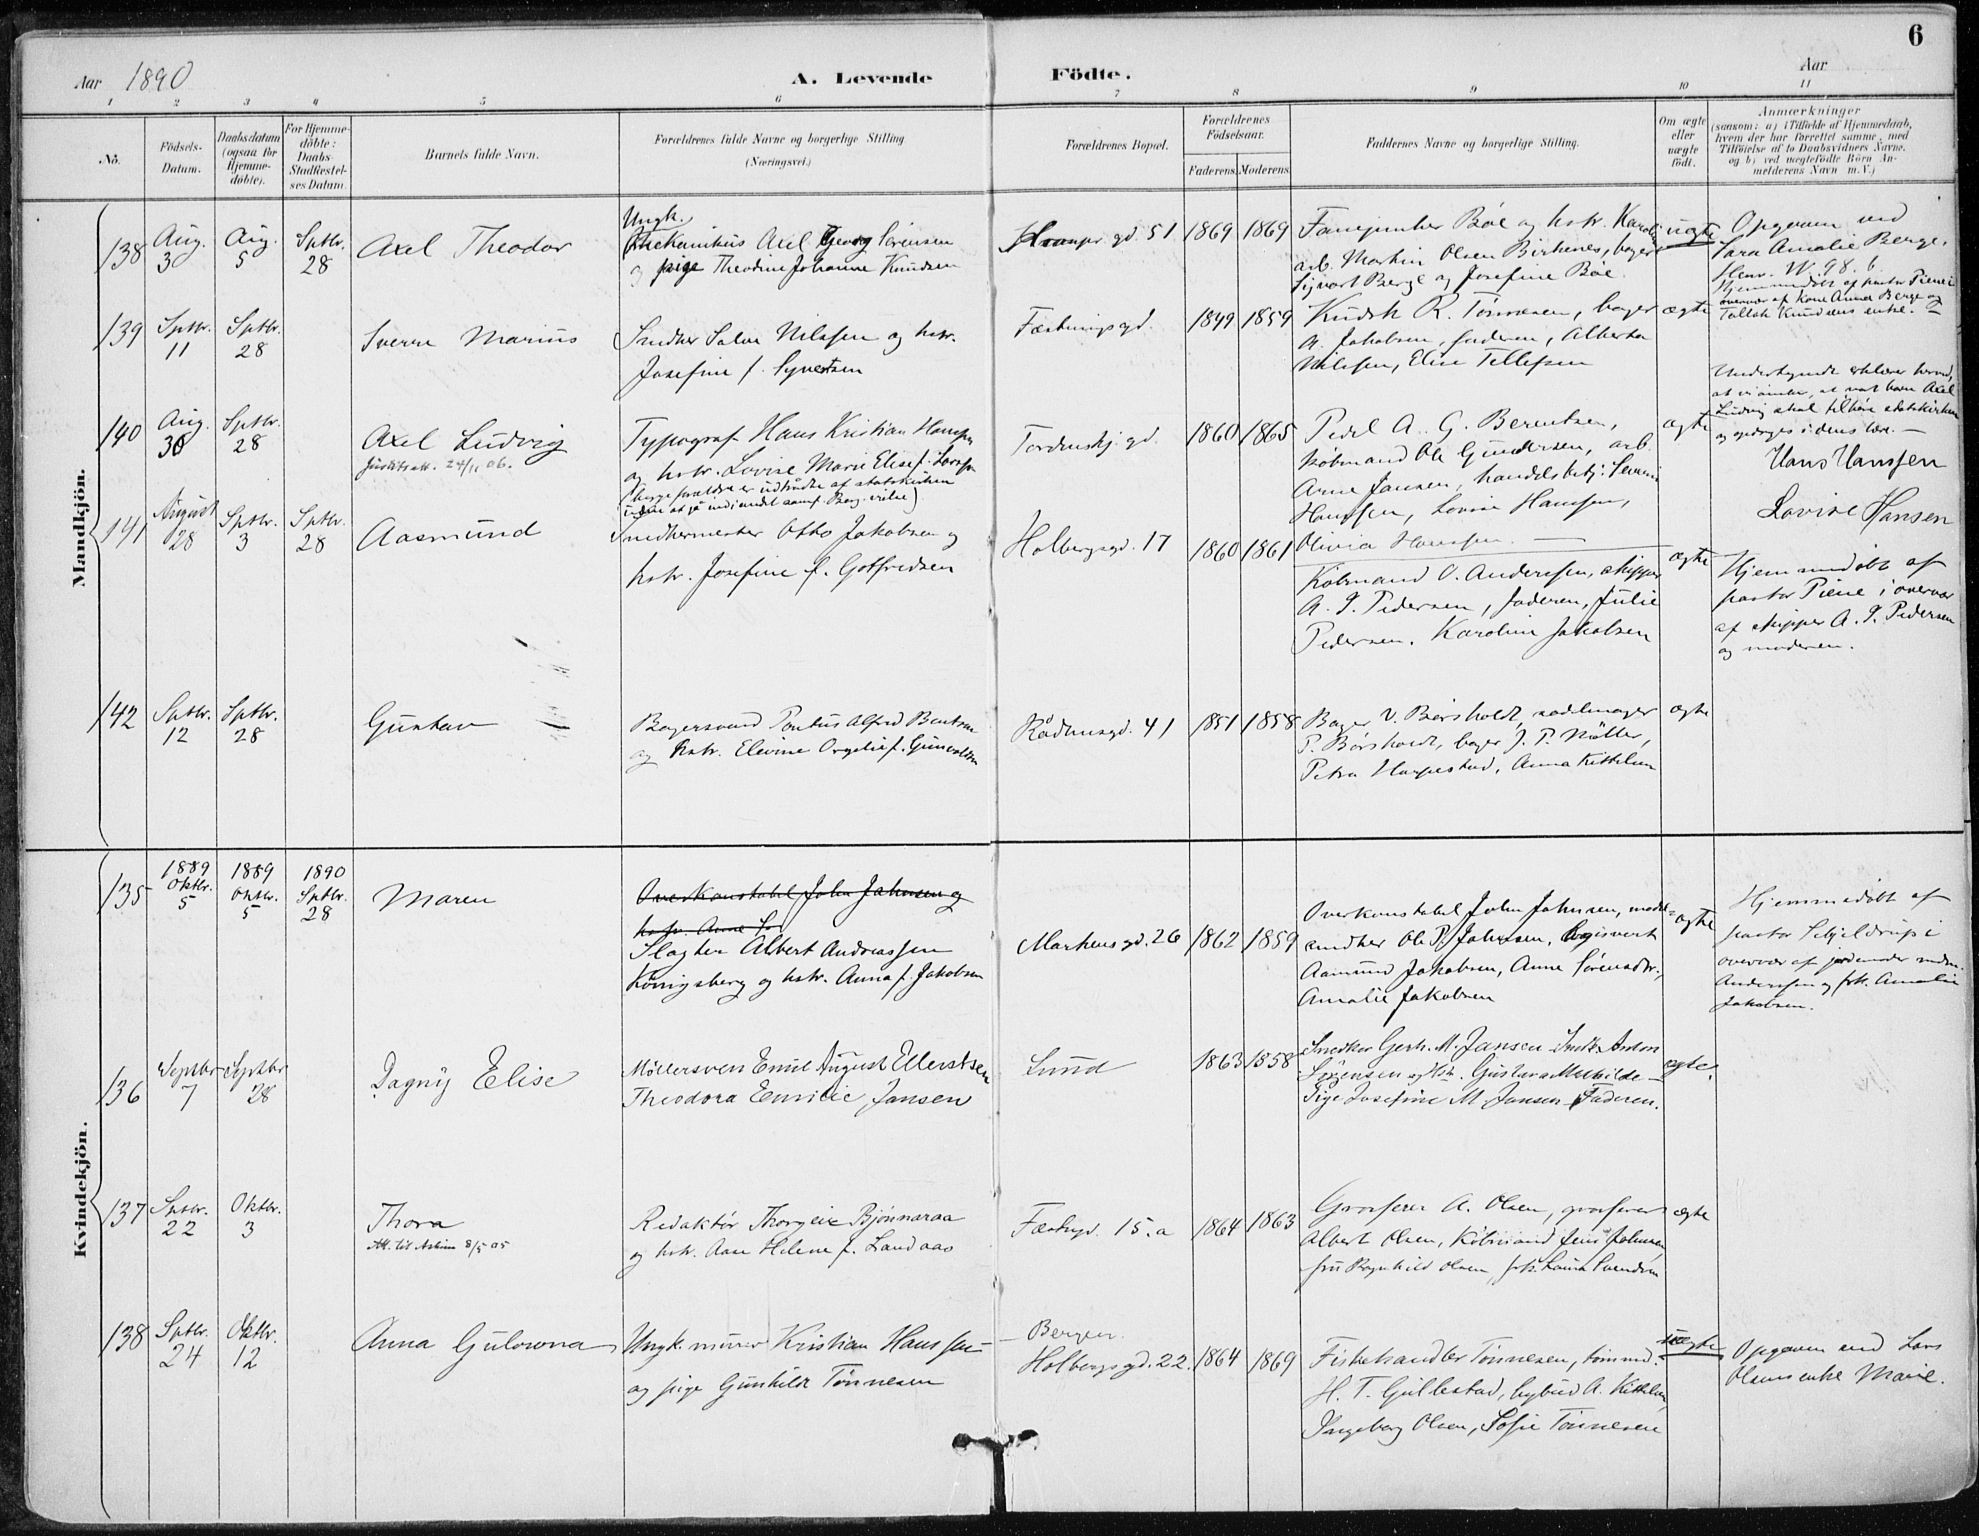 6
Aar 1890 A. Levende Födte. Aar
1 2 3 4 5 6 7 8 9 10 11
No.
Födsels-
Datum.
Daabsdatum
(ogsaa for
Hjemme-
döbte).
For Hjemme-
döbte:
Daabs-
Stadfæstel-
ses Datum.
Barnets fulde Navn.
Forældrenes fulde Navne og borgerlige Stilling
(Næringsvei.)
Forældrenes Bopæl.
Forældrenes
Födselsaar.
Faderens. Moderens.
Faddernes Navne og borgerlige Stilling.
Om ægte
eller
uægte
födt.
Anmærkninger
(saasom: a) i Tilfælde af Hjemmedaab,
hvem der har forrettet samme, med
Tilföielse af to Daabsvidners Navne.
og b) ved uægtefödte Börn An-
melderens Navn m. V.)
Mandkjön.
138
Aug.
3
Aug.
5
Sptbr.
28
Axel Theodor
Ungk.
Mekanikus Axel Georg Sörensen
og pige Theodine Johanne Knudsen
gd. 51
1869 1869
Fanejunker Böe og hstr. Karoline
arb. Martin Olsen Birkenes, bager
Sigvart Berge og Josefine Böe
uægte
Opgaven ved
Sara Amalie Berge,
W. 98. b.
Hjemmedöbt af pastor Piene i
overvær af Kone Anna Berge og
Tallak Knudsens enke.
139
Sptbr.
11
Sptbr.
28
Sverre Marius
Snedker Salve Nilssen og hstr.
Josefine f. Syvertsen
Fæstningsgd.
1849 1859
Kudsk R. Tönnesen, bager
A. Jakobsen, faderen, Alberta
Nilssen, Elise Tellefsen
ægte
140
Aug.
30
Sptbr.
28
Axel Ludvig
24/11 06.
Typograf Hans Kristian Hanssen
og hstr. Lovise Marie Elise f. Larssen
(begge forældre er udtraadte af statskirken
Tordenskj. gd.
1860 1865
Pedel A. G. Berentsen,
Köbmand Ole Gundersen, arb.
Arne Jansen, handelsbetj. Severin
Hanssen, Lovise Hanssen,
Olivia Hanssen.
ægte
Undertegnede erklærer herved,
at vi önsker, at vort barn Axel
Ludvig skal tilhöre statskirken
og opdrages i dens lære.
Hans Hanssen
Lovise Hansen
141
August
28
Sptbr.
3
Sptbr.
28
Aasmund
Snedkermester Otto Jakobsen og
hstr. Josefine f. Gotfredsen
Holbergsgd. 17
1860 1861
Köbmand O. Anderssen, skipper
A. G. Pedersen, faderen, Julie
Pedersen. Karoline Jakobsen
ægte
Hjemmedöbt af
pastor Piene i overvær
af skipper A. G. Pedersen
og moderen.
142
Sptbr.
12
Sptbr.
28
Gustav
Bagersvend Pontus Alfred Bentsen
og hstr. Elevine Orgelie f. Gunvaldsen
Rådhusgd. 41
1851 1858
Bager V. Börsholdt, sadelmager
P. Börsholdt, bager J. P. Möller,
Petra Harpestad, Anna Kittelsen
ægte
Kvindekjön.
135
1889
Oktbr.
5
1889
Oktbr.
5
1890
Sptbr.
28
Maren
Overkonstabel John Johnsen og
hstr. Anne Sö
Slagter Albert Andreassen
Königsberg og hstr. Anna f. Jakobsen
Markens gd. 26
1862 1859
Overkonstabel John Johnsen, model-
snedker Ole P. Johnsen,
Aamund Jakobsen, Anne Sörensdtr.,
Amalie Jakobsen
ægte
Hjemmedöbt af
pastor Schjeldrup i
overvær af jordemoder mdm.
Anderssen og frk. Amalie
Jakobsen.
136
Septbr
7
Septbr
28
Dagny Elise
Möllersven Emil August Ellertsen
Theodora Emilie Jansen
Lund
1863 1858
Snedker Gerh. M. Jansen - Snedk. Anton
Sörensen og Hstr. Gustava Mathilde -
Pige Josefine M. Jansen - Faderen.
ægte.
137
Sptbr.
22
Oktbr.
3
Thora
Att. til 8/5 05
Redaktör Thorgeir Bjönnaraa
og hstr. Aase Helene f. Landaas
Fæstngd. 15.a
1864 1863
Grosserer A. Olsen, grosserer
Albert Olsen, Köbmand Jens Johnsen,
fru Ragnhild Olsen, frk. Laura Svendsen
ægte
138
Sptbr.
24
Oktbr.
12
Anna Gulowna
Ungk. murer Kristian Hanssen -
og pige Gunhilde Tönnesen
- Bergen.
Holbergsgd. 22.
1864 1869
Fiskehandler Tönnesen, tömmd.
H. T. Gullestad, bybud A. Kittelsen,
Ingeborg Olsen, Sofie Tönnesen
uægte
Opgaven ved Lars
Olsens enke Marie.